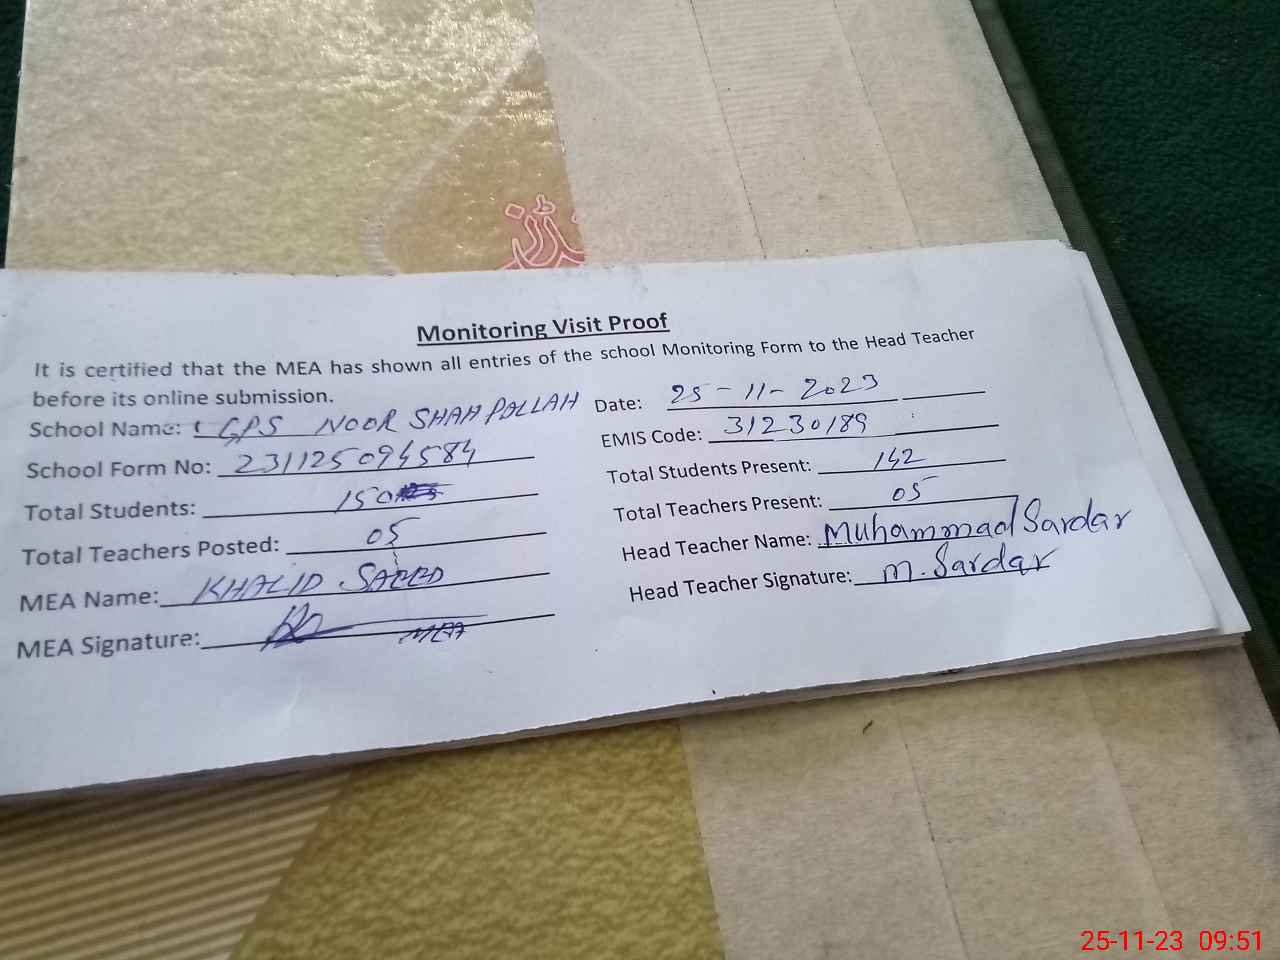 Monitoring Visit Proof
It is certified that the MEA has shown all entries of the school Monitoring Form to the Head Teacher
before its online submission.
School Name: GPS NOOR SHAH POLLAH
Date: 25-11-2023
School Form No: 231125094584
EMIS Code: 31230189
Total Students: 150
Total Students Present: 142
Total Teachers Posted: 05
Total Teachers Present: 05
MEA Name: KHALID SAEED
Head Teacher Name: Muhammad Sardar
MEA Signature: MEA
Head Teacher Signature: M. Sardar
25-11-23 09:51